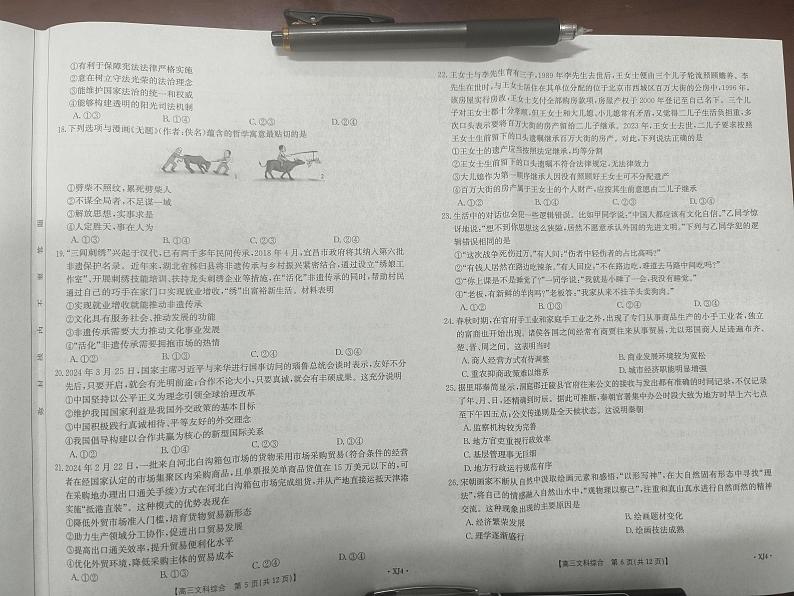 ①有利于保障宪法法律严格实施
②意在树立守法光荣的法治理念
③能维护国家法治的统一和权威
④能够构建透明的阳光司法机制
A. ①③ B. ①④ C. ②③ D. ②④
18. 下列选项与漫画《无题》(作者:佚名)蕴含的哲学寓意最贴切的是
1 2
①劈柴不照纹,累死劈柴人
②不谋全局者,不足谋一域
③解放思想,实事求是
④人定胜天,事在人为
A. ①③ B. ①④ C. ②③ D. ②④
19. “三闾刺绣”兴起于汉代,已有两千多年民间传承,2018年4月,宜昌市政府将其纳入第六批
非遗保护名录。近年来,湖北省秭归县将非遗传承与乡村振兴紧密结合,通过设立“绣娘工
作室”、开展刺绣技能培训、扶持龙头刺绣企业等措施,在“活化”非遗传承的同时,帮助村民
通过自己的巧手在家门口实现就业增收,“绣”出富裕新生活。材料表明
①实现就业增收就能推动非遗传承
②文化具有服务社会、推动发展的功能
③非遗传承需要大力推动文化事业发展
④“活化”非遗传承需要拥抱市场的热情
A. ①② B. ①③ C. ②④ D. ③④
20. 2024年3月25日,国家主席习近平与来华进行国事访问的瑙鲁总统会谈时表示,友好不分
先后,只要开启,就会有光明前途;合作不论大小,只要真诚,就会有丰硕成果。这充分说明
①中国坚持以公平正义为理念引领全球治理改革
②维护我国国家利益是我国外交政策的基本目标
③中国积极践行真诚相待、平等友好的外交理念
④我国倡导构建以合作共赢为核心的新型国际关系
A. ①② B. ①④ C. ②③ D. ③④
21. 2024年2月22日,一批来自河北白沟箱包市场的货物采用市场采购贸易(符合条件的经营
者在经国家认定的市场集聚区内采购商品,且单票报关单商品货值在15万美元以下的,可
在采购地办理出口通关手续)方式在河北白沟箱包市场完成组货,并从产地直接运抵天津港
实施“抵港直装”。这种模式的优势表现在
①降低外贸市场准入门槛,培育货物贸易新形态
②助力生产领域分工协作,促进出口贸易发展
③提高出口通关效率,提升贸易便利化水平
④优化外贸环境,降低采购主体的贸易成本
A. ①② B. ①③ C. ②④ D. ③④
【高三文科综合 第5页(共12页)】 ·XJ4·
22. 王女士与李先生育有三子,1989年李先生去世后,王女士便由三个儿子轮流照顾赡养。李
先生在世时,与王女士居住在其单位分配的位于北京市西城区百万大街的公房内,1996年,
该房屋实行房改,王女士支付全部购房款项,房屋产权于2000年登记至自己名下。三个儿
子对王女士都很孝顺,但王女士和大儿媳、小儿媳常有矛盾,又觉得二儿子生活负担重,多
次口头表示要将百万大街的房产留给二儿子继承。2023年,王女士去世,二儿子要求按照
王女士生前留下的口头遗嘱继承百万大街的房产。对此,下列说法正确的是
①王女士的遗产应当按照法定继承,均等分割
②王女士生前留下的口头遗嘱不符合法律规定,无法律效力
③大儿媳作为第一顺序继承人因没有照顾好王女士可不分配遗产
④百万大街的房产属于王女士的个人财产,应按其生前意愿由二儿子继承
A. ①② B. ①④ C. ②③ D. ③④
23. 生活中的对话也会犯一些逻辑错误。比如甲同学说,“中国人都应该有文化自信。”乙同学惊
讶地说:“想不到你思想这么狭隘,居然不愿意承认外国的先进文明。”下列与乙同学犯的逻
辑错误相同的是
①“这次战争死伤过万。”有人问:“伤者中轻伤者的占比高吗?”
②“有钱人居然在路边吃辣条。”有人回应:“不在路边吃,难道去马路中间吃吗?”
③“你上课是不是睡觉了?”一同学说:“我就是小睡了一会,我没有睡觉。”
④“老板,有新鲜的羊肉吗?”老板答:“我家从来不挂羊头卖狗肉。”
A. ①③ B. ①④ C. ②③ D. ②④
24. 春秋时期,在官府手工业和家庭手工业之外,出现了专门从事商品生产的小手工业者,独立
的富商也开始出现。诸侯各国之间经常有商贾往来从事贸易,尤以郑国商人足迹遍布齐、
楚、晋、周之间。这表明当时
A. 商人经营方式有待调整 B. 商业发展环境较为宽松
C. 重农抑商政策难以维系 D. 城市经济职能明显增强
25. 据里耶秦简显示,洞庭郡迁陵县官府往来公文的接收与发出都有准确的时间记录,不仅记录
了年、月、日,还精确到时辰。据此可推断,秦朝官署集中办公时段大致为时间为早上六七点
至下午四五点;公文传递则是全天候状态。这说明秦朝
A. 监察机构较为完善
B. 官僚政治秩序优化
C. 基层管理事无巨细
D. 地方行政运行规范有序
26. 宋朝画家不断从自然中汲取绘画元素和感悟,“以形写神”,在大自然固有形态中寻找“理
法”,将自己的情感融入自然山水中,“观物理以察己”,注重和真山真水进行自然而然的精神
交流。这种现象出现的主要原因是
A. 经济繁荣发展 B. 绘画题材变化
C. 理学逐渐发展 D. 绘画技法成熟
【高三文科综合 第6页(共12页)】 ·XJ4·